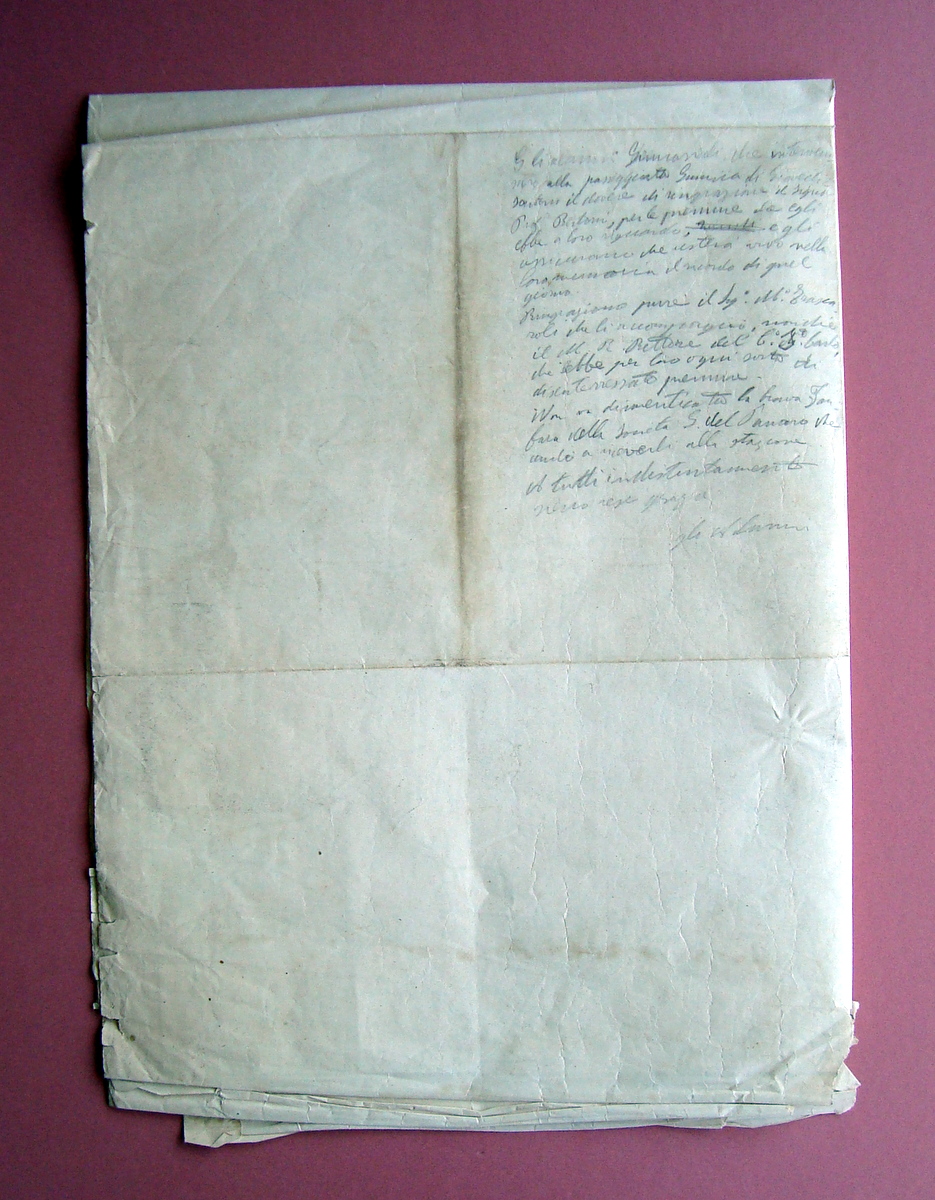 Gli alunni Ginnasiali che interven
alla passeggiata Ginnica di
sentono il dovere di ringraziare il Signor
Prof. Bertoni, per le premure che egli
ebbe a loro riguardo, e gli
assicurano che resterà vivo nella
loro memoria il ricordo di quel
giorno.
Ringraziano pure il Sig. M.
che li accompagnò, nonchè
il M. R. Rettore del
che ebbe per loro ogni sorta di
disinteressate premure.
Non va dimenticata la brava Fan
fara della Società G. del Panaro che
andò a riceverli alla stazione
A tutti indistintamente
rese grazie
gli Alunni